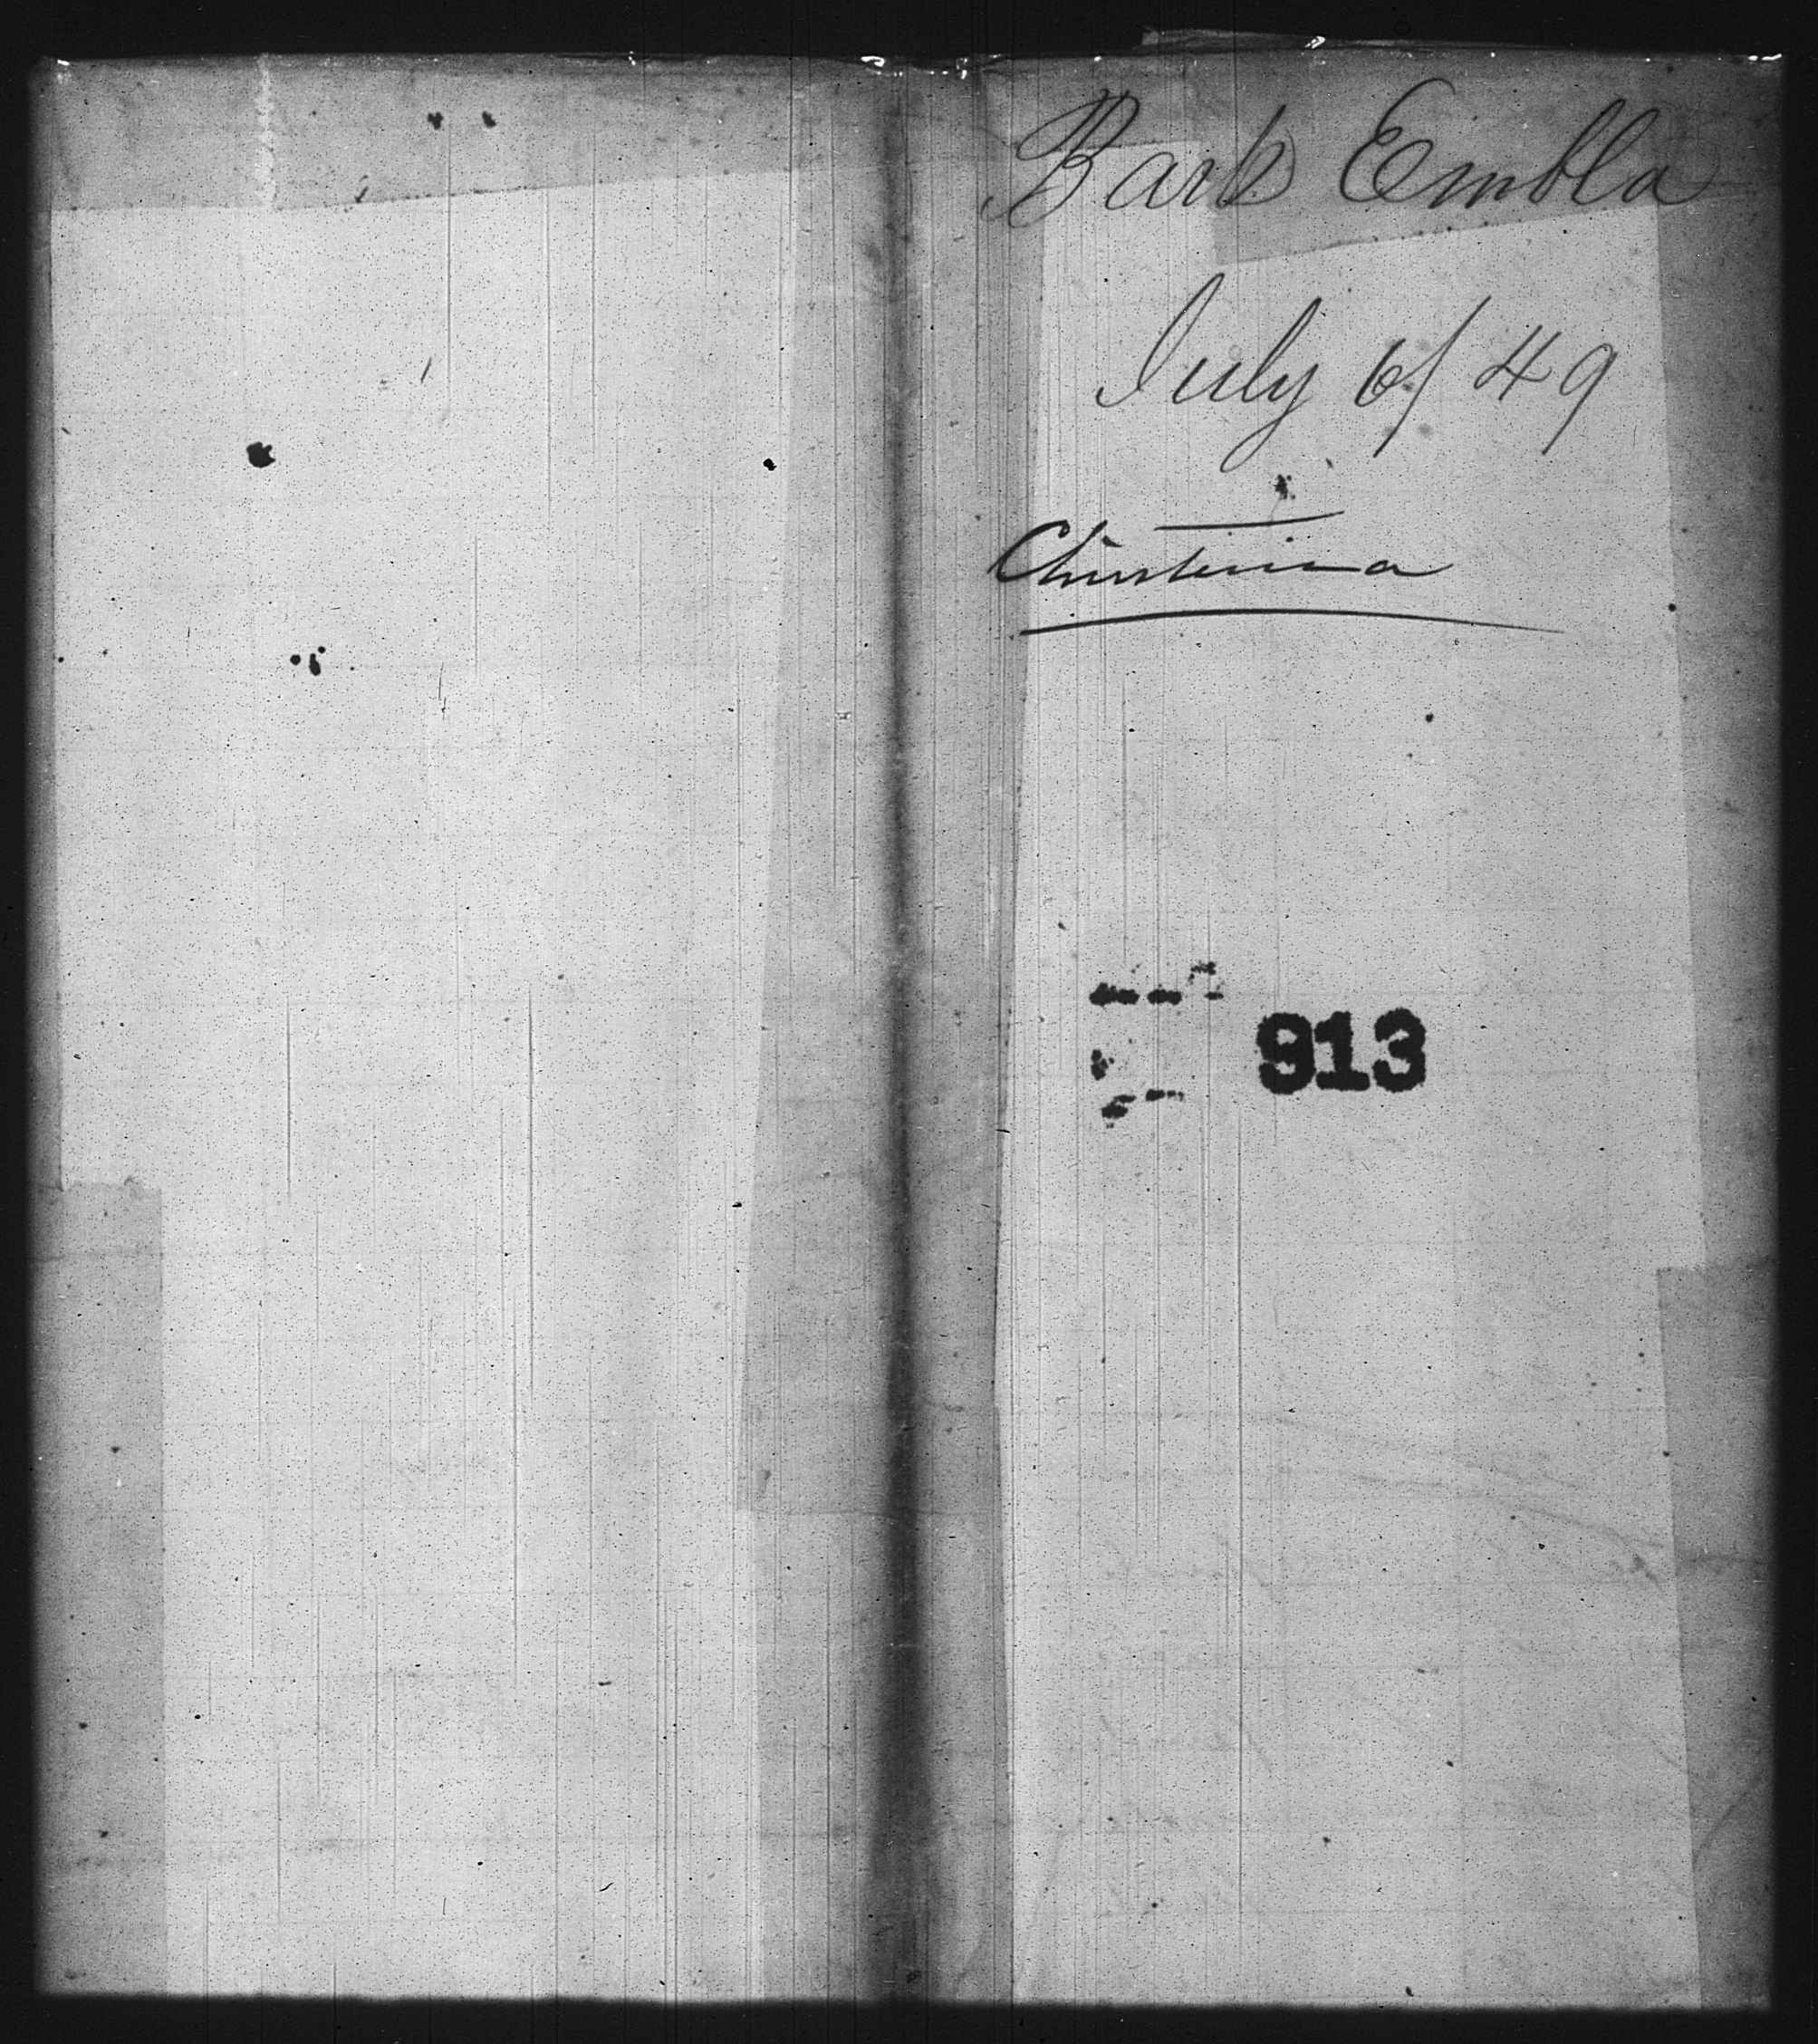 Bark Embla
July 6/49
Christinina
913